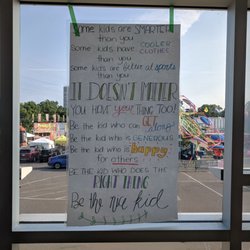 Some kids are SMARTER
than you
Some kids have COOLER CLOTHES
than you
Some kids are better at sports
than you
IT DOESN'T MATTER
YOU HAVE your THING TOO!
Be the kid who can GET along
Be the kid who is GENEROUS
Be the kid who is happy
for others
BE THE KID WHO DOES THE
RIGHT THING
Be the nice kid